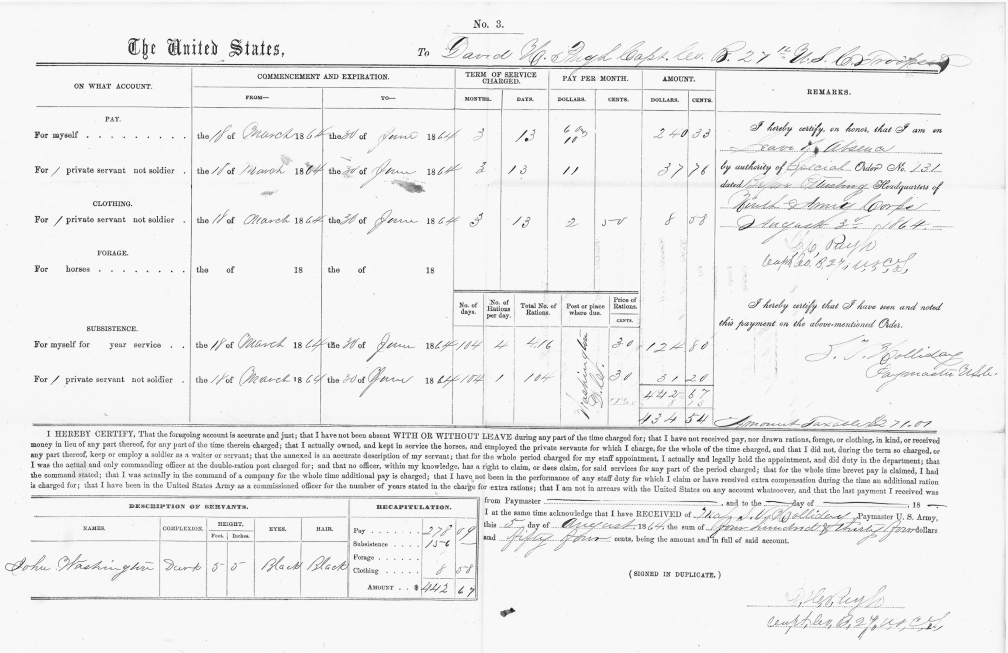 No. 3.
The United States, To David H. Capt. Co. B. 27th U.S.C. Troops
ON WHAT ACCOUNT.
COMMENCEMENT AND EXPIRATION.
FROM— TO—
TERM OF SERVICE CHARGED.
MONTHS. DAYS.
PAY PER MONTH.
DOLLARS. CENTS.
AMOUNT.
DOLLARS. CENTS.
REMARKS.
PAY.
For myself . . . . . . . . . the 18 of March 1864 the 30 of June 1864 3 13 240 33
For 1 private servant not soldier . the 18 of March 1864 the 30 of June 1864 3 13 11 37 76
CLOTHING.
For 1 private servant not soldier . the 18 of March 1864 the 30 of June 1864 3 13 2 50 8 58
FORAGE.
For horses . . . . . . . . the of 18 the of 18
No. of days. No. of Rations per day. Total No. of Rations. Post or place where due. Price of Rations. CENTS.
SUBSISTENCE.
For myself for year service . . the 18 of March 1864 the 30 of June 1864 104 4 416 Washington D.C. 30 124 80
For 1 private servant not soldier . the 18 of March 1864 the 30 of June 1864 104 1 104 30 31 20
442 67
8 13
434 54
I hereby certify, on honor, that I am on
Leave of Absence
by authority of Special Order No. 131
dated Headquarters of
Ninth Army Corps
August 3d 1864.
Capt. Co. B, 27, U.S.C.T.
I hereby certify that I have seen and noted
this payment on the above-mentioned Order.
Holliday
Paymaster U.S.A.
Amount Taxable $271.01
I HEREBY CERTIFY, That the foregoing account is accurate and just; that I have not been absent WITH OR WITHOUT LEAVE during any part of the time charged for; that I have not received pay, nor drawn rations, forage, or clothing, in kind, or received
money in lieu of any part thereof, for any part of the time therein charged; that I actually owned, and kept in service the horses, and employed the private servants for which I charge, for the whole of the time charged, and that I did not, during the term so charged, or
any part thereof, keep or employ a soldier as a waiter or servant; that the annexed is an accurate description of my servant; that for the whole period charged for my staff appointment, I actually and legally held the appointment, and did duty in the department; that
I was the actual and only commanding officer at the double-ration post charged for; and that no officer, within my knowledge, has a right to claim, or does claim, for said services for any part of the period charged; that for the whole time brevet pay is claimed, I had
the command stated; that I was actually in the command of a company for the whole time additional pay is charged; that I have not been in the performance of any staff duty for which I claim or have received extra compensation during the time an additional ration
is charged for; that I have been in the United States Army as a commissioned officer for the number of years stated in the charge for extra rations; that I am not in arrears with the United States on any account whatsoever, and that the last payment I received was
from Paymaster , and to the day of , 18
I at the same time acknowledge that I have RECEIVED of Holliday, Paymaster U. S. Army,
this 5 day of August 1864, the sum of four hundred & thirty four dollars
and fifty four cents, being the amount and in full of said account.
(SIGNED IN DUPLICATE.)
Capt. Co. B, 27, U.S.C.T.
DESCRIPTION OF SERVANTS.
NAMES. COMPLEXION. HEIGHT. Feet. Inches. EYES. HAIR.
John Washington Dark 5 5 Black Black
RECAPITULATION.
Pay . . . . . 278 09
Subsistence . . . . 156
Forage . . . .
Clothing . . . . . 8 58
AMOUNT . . $ 442 67